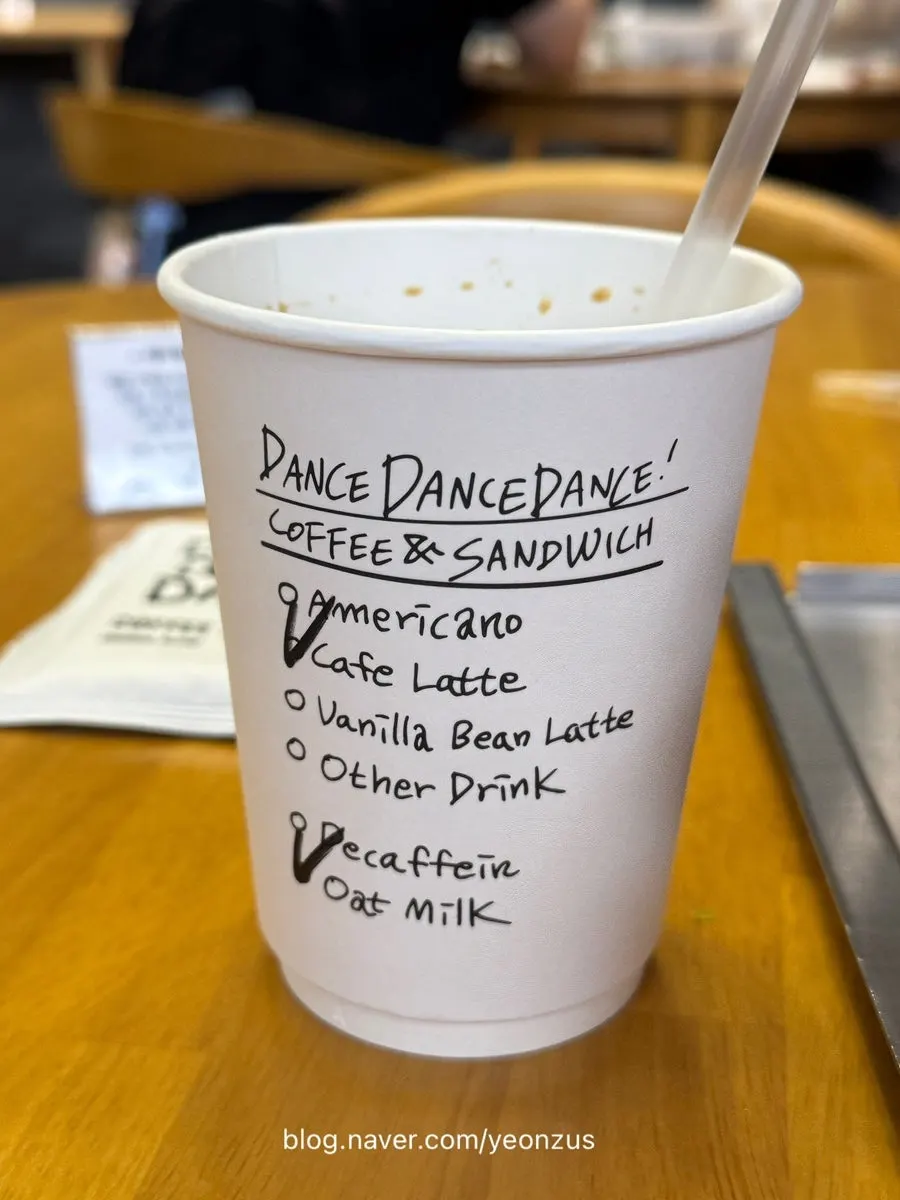 DANCE DANCE DANCE!
COFFEE & SANDWICH
Americano
Cafe Latte
Vanilla Bean Latte
Other Drink
Decaffein
Oat Milk
COFFEE
blog.naver.com/yeonzus